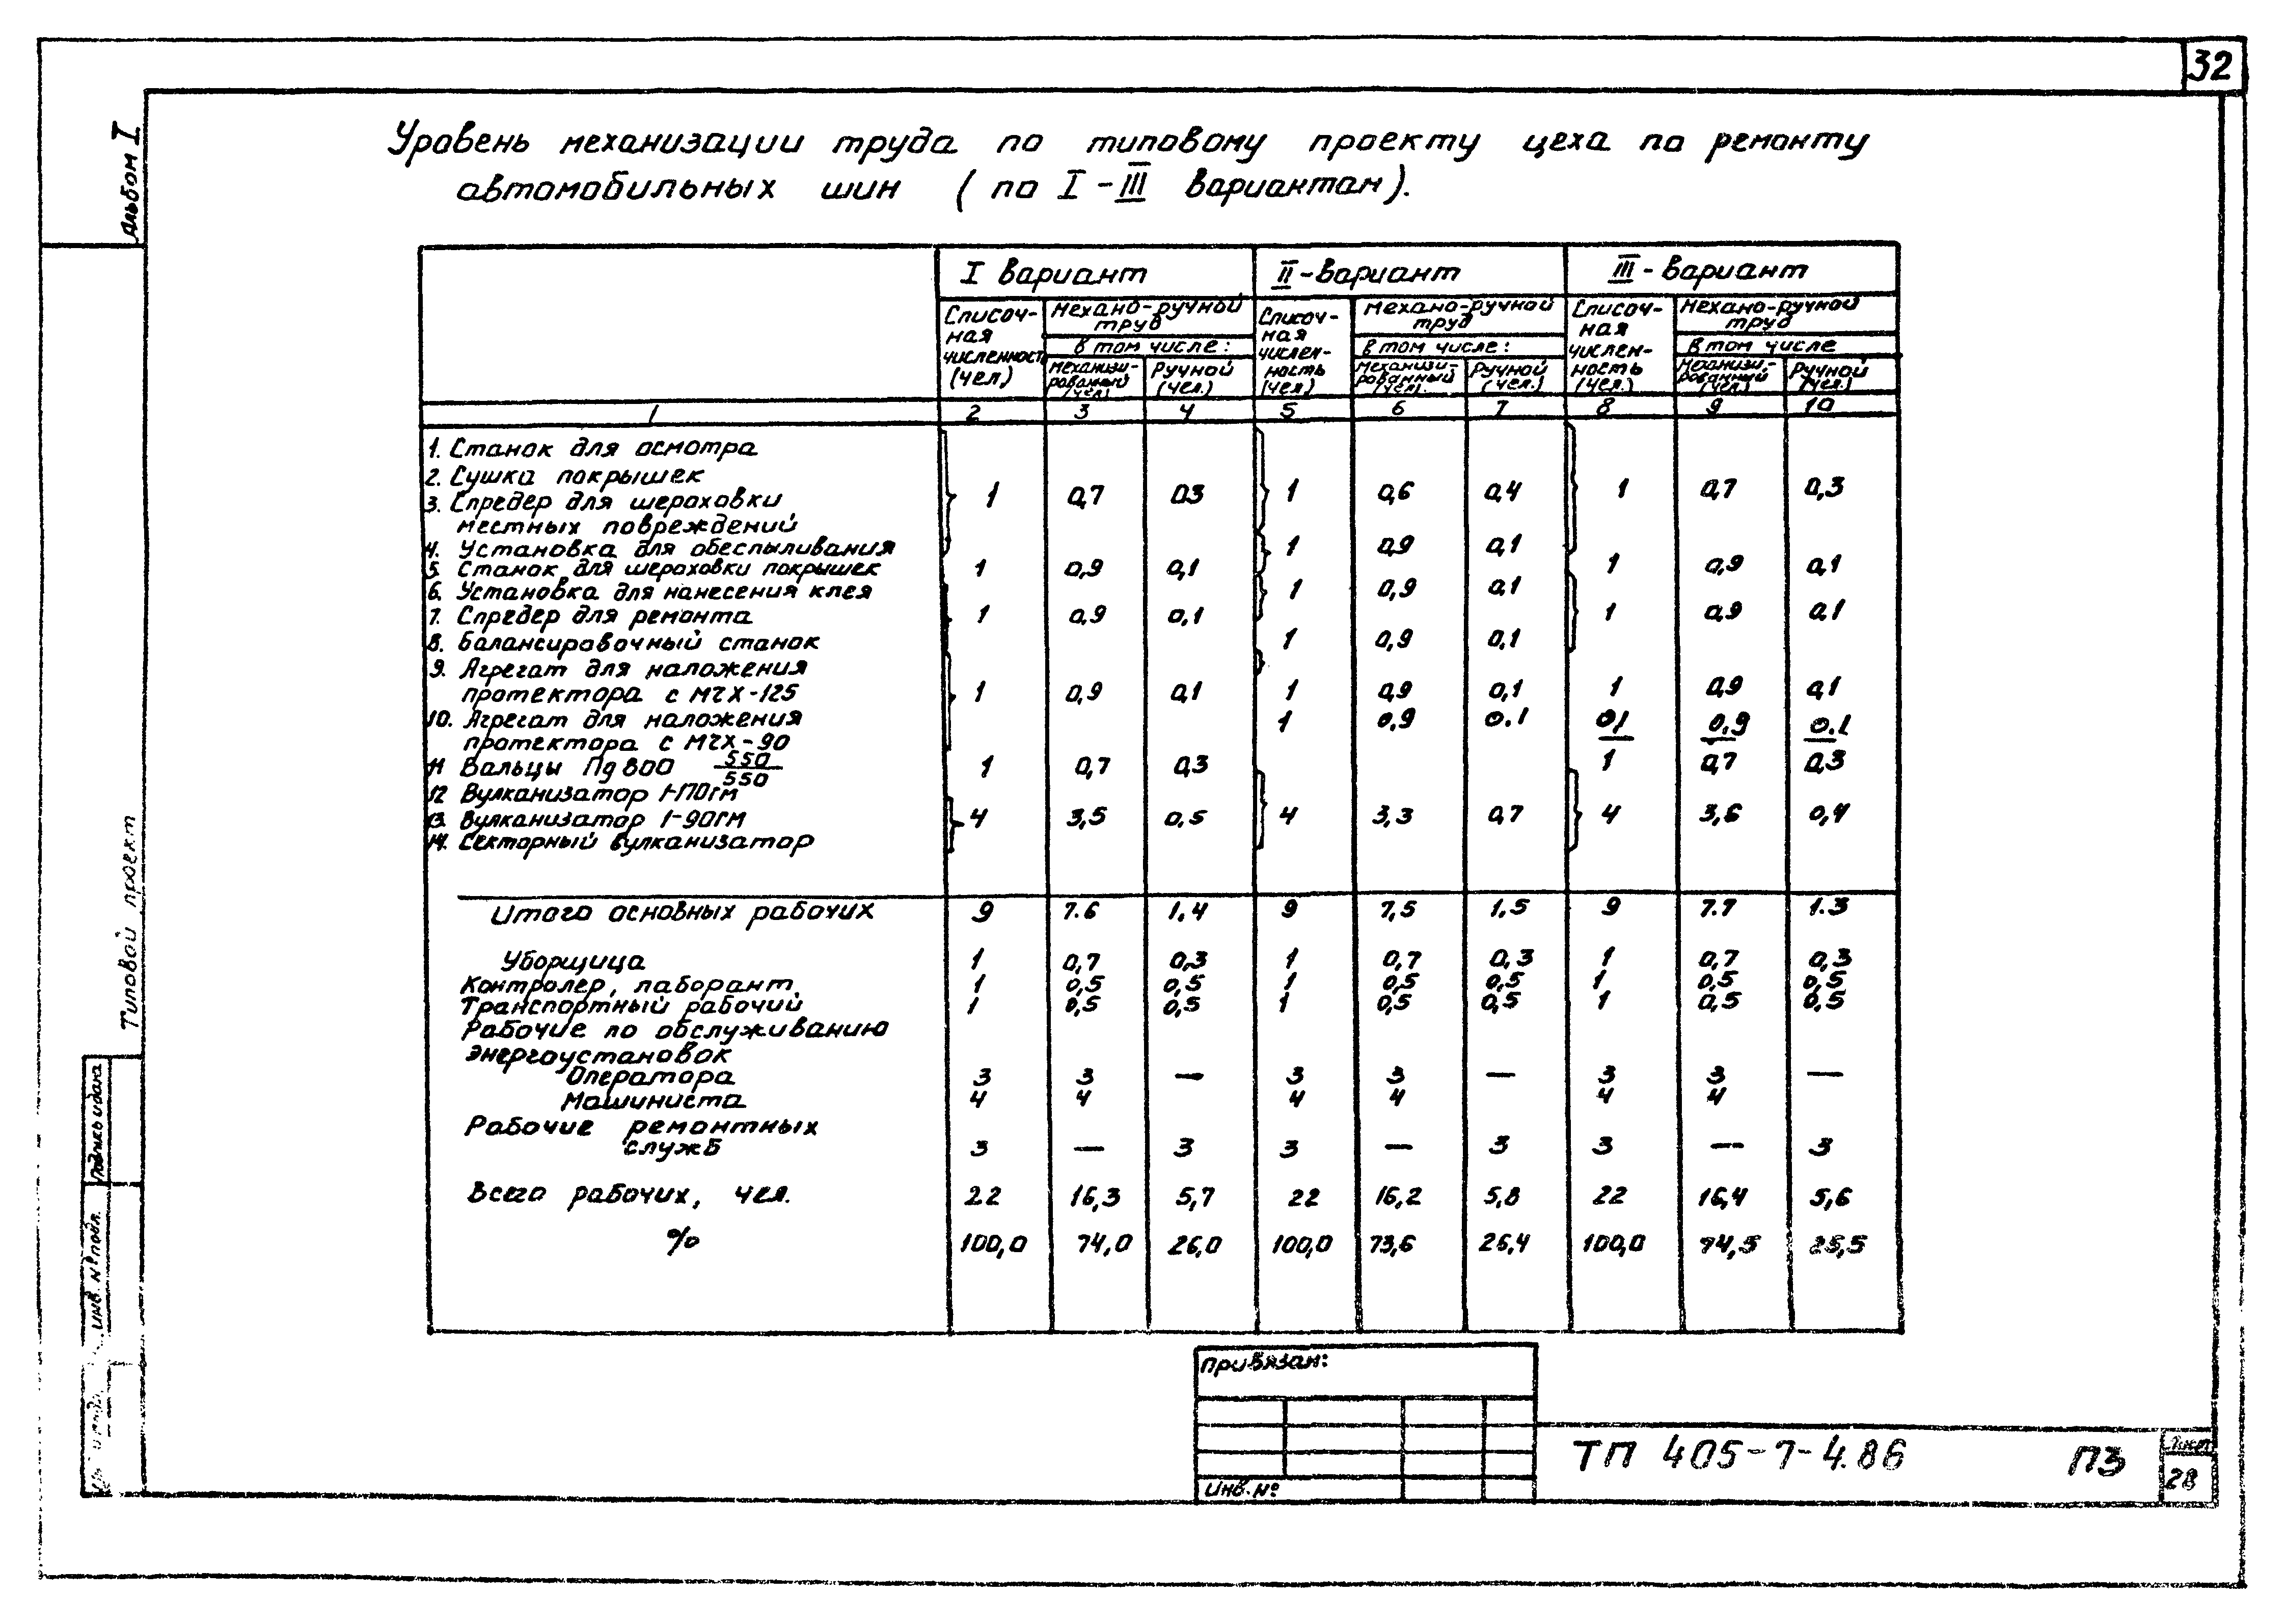 32
Альбом I
Уровень механизации труда по типовому проекту цеха по ремонту
автомобильных шин (по I-III вариантам).
I вариант II-вариант III-вариант
Списоч-ная численност (чел.) Механо-ручной труд в том числе: Механизи-рованный (чел) Ручной (чел.) Списоч-ная числен-ность (чел) Механо-ручной труд в том числе: Механизи-рованный (чел). Ручной (чел.) Списоч-ная числен-ность (чел.) Механо-ручной труд в том числе Механизи-рованный (чел.) Ручной (чел.)
1 2 3 4 5 6 7 8 9 10
1. Станок для осмотра
2. Сушка покрышек
3. Спредер для шероховки 1 0,7 0.3 1 0,6 0,4 1 0,7 0,3
местных повреждений
4. Установка для обеспыливания 1 0,9 0,1
5. Станок для шероховки покрышек 1 0,9 0,1 1 0,9 0,1
6. Установка для нанесения клея 1 0,9 0,1
7. Спредер для ремонта 1 0,9 0,1 1 0,9 0,1
8. Балансировочный станок 1 0,9 0,1
9. Агрегат для наложения
протектора с МЧХ-125 1 0,9 0,1 1 0,9 0,1 1 0,9 0,1
10. Агрегат для наложения 1 0,9 0.1 0,1 0,9 0.1
протектора с МЧХ-90
11 Вальцы Пд 800 550/550 1 0,7 0,3 1 0,7 0,3
12 Вулканизатор 1-170гм
13. Вулканизатор 1-90гм 4 3,5 0,5 4 3,3 0,7 4 3,6 0,4
14. Секторный вулканизатор
Итого основных рабочих 9 7.6 1,4 9 7,5 1,5 9 7.7 1.3
Уборщица 1 0,7 0,3 1 0,7 0,3 1 0,7 0,3
Контролер, лаборант 1 0,5 0,5 1 0,5 0,5 1 0,5 0,5
Транспортный рабочий 1 0,5 0,5 1 0,5 0,5 1 0,5 0,5
Рабочие по обслуживанию
энергоустановок
Оператора 3 3 — 3 3 — 3 3 —
Машиниста 4 4 4 4 4 4
Рабочие ремонтных
служб 3 — 3 3 — 3 3 — 3
Всего рабочих, чел. 22 16,3 5,7 22 16,2 5,8 22 16,4 5,6
% 100,0 74,0 26,0 100,0 73,6 26,4 100,0 74,5 25,5
Типовой проект
Подпись и дата
инв. № подл.
Привязан:
Инв. №
ТП 405-7-4.86 ПЗ
Лист
28